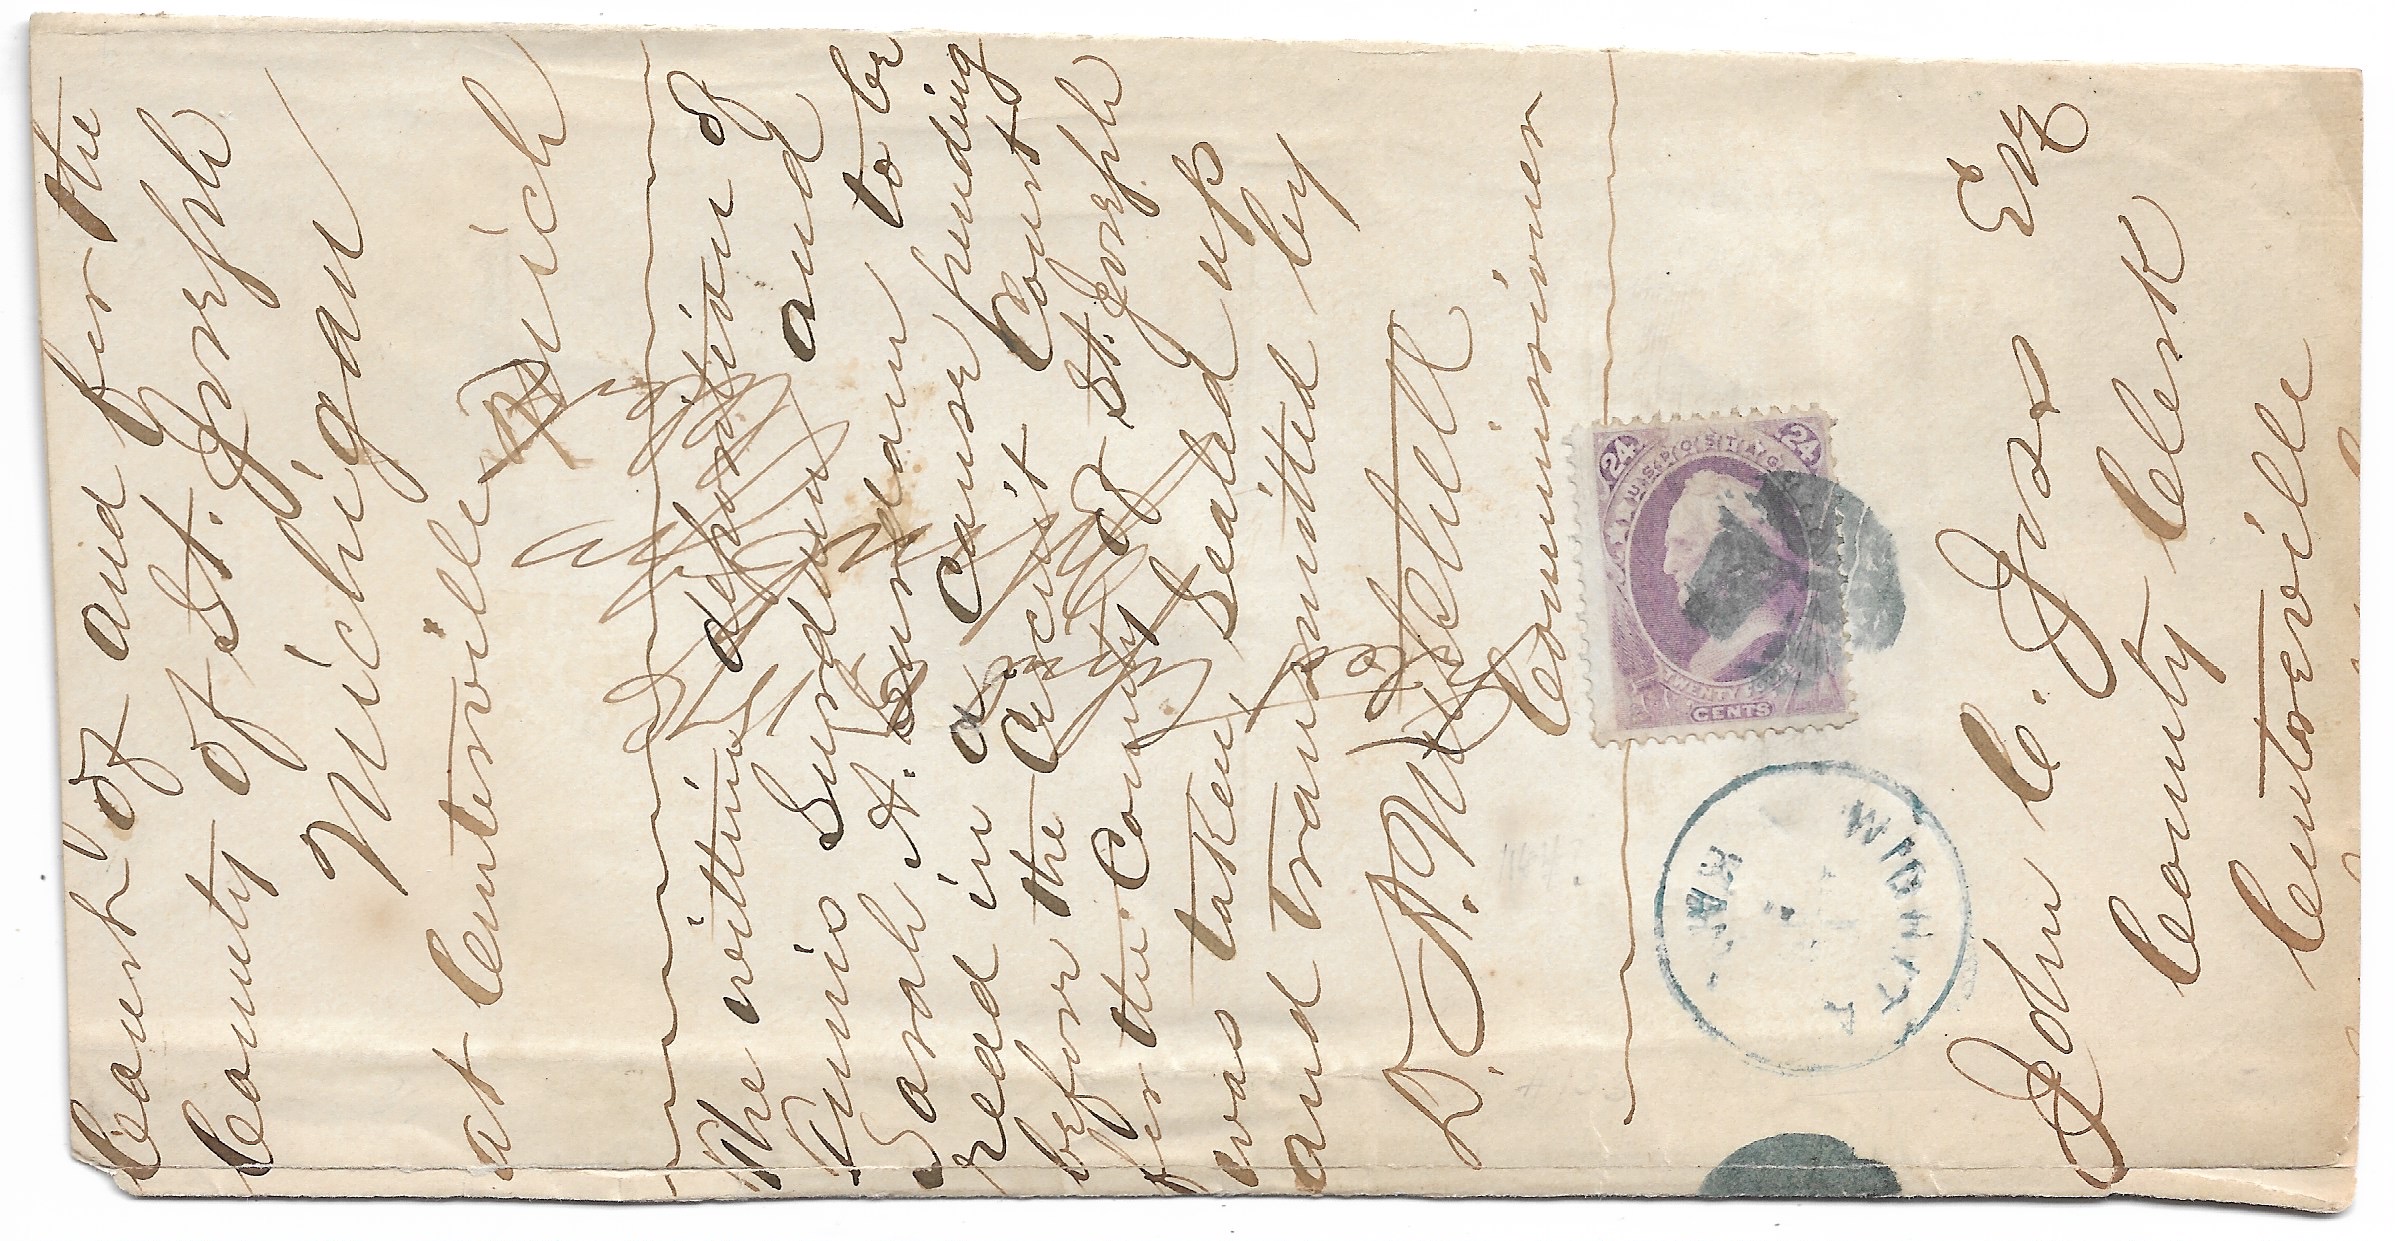 Court of and for the
County of St. Joseph
Michigan
at Centerville Mich
The written deposition of
Tunis Surdam and
Sarah A. Surdam to be
read in a Cause pending
before the Circuit Court
for the County of St. Joseph
was taken, Sealed up
and transmitted by
D. A. Mitchell
Commissioner
24 24
U.S. POSTAGE
TWENTY FOUR
CENTS
WICHITA
KAN.
John C. Joss Esq
County Clerk
Centerville